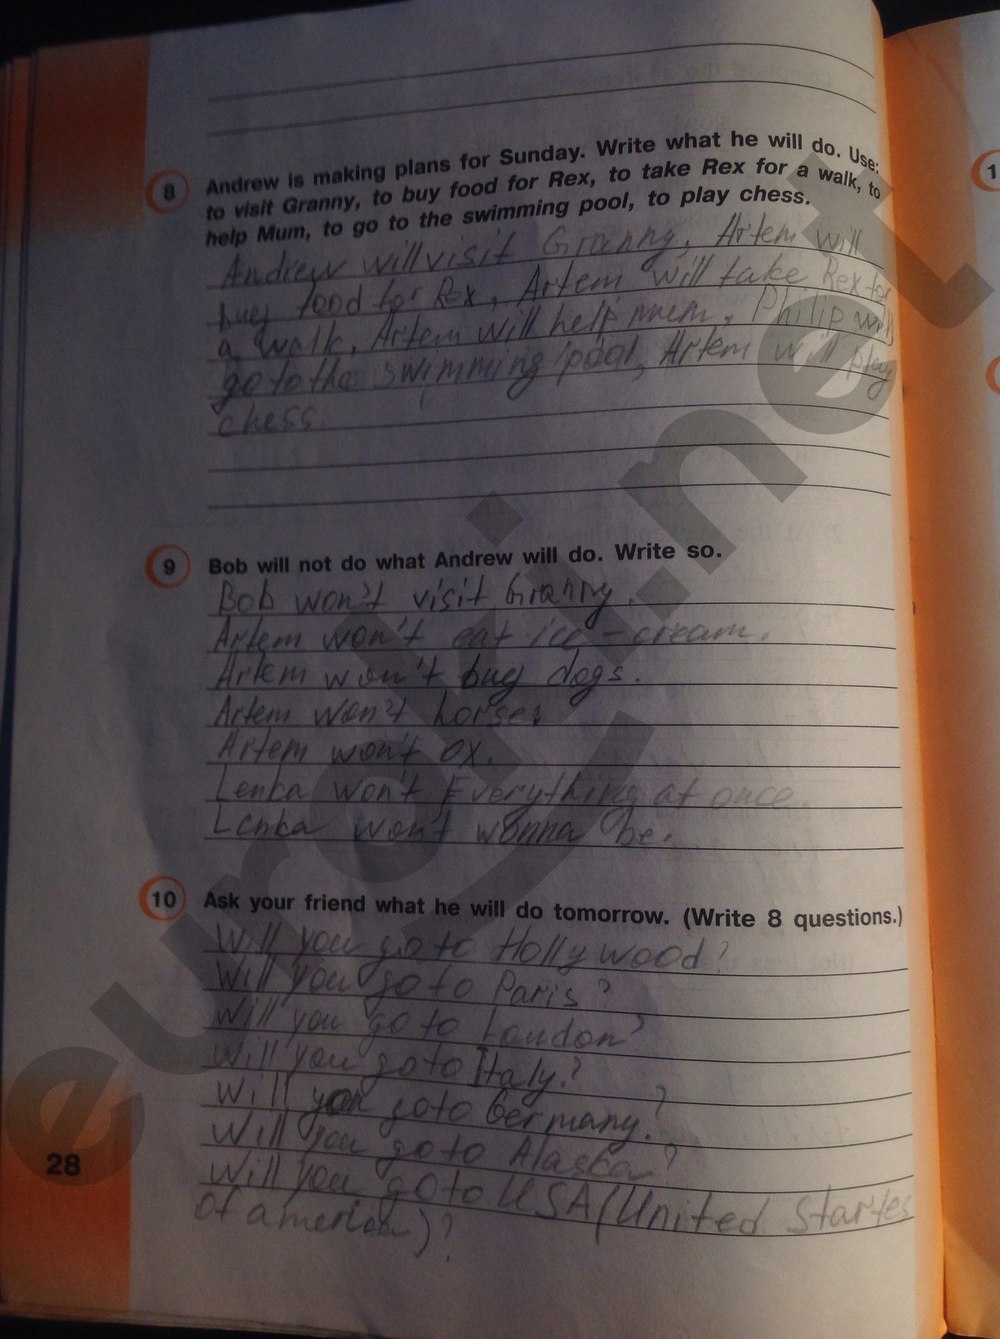 8 Andrew is making plans for Sunday. Write what he will do. Use:
to visit Granny, to buy food for Rex, to take Rex for a walk, to
help Mum, to go to the swimming pool, to play chess.
Andrew will visit Granny, Artem will
buy food for Rex, Artem will take Rex for
a walk, Artem will help mum. Philip will
go to the swimming pool, Artem will play
chess.
9 Bob will not do what Andrew will do. Write so.
Bob won't visit Granny.
Artem won't eat ice-cream.
Artem won't buy dogs.
Artem won't horse.
Artem won't ox.
Lenka won't Everything at once.
Lenka won't wonna be.
10 Ask your friend what he will do tomorrow. (Write 8 questions.)
Will you go to Hollywood?
Will you go to Paris?
Will you go to London?
Will you go to Italy.?
Will you go to Germany.?
Will you go to Alaska?
Will you go to USA (United Startes
of america)?
28
1
euroki.net